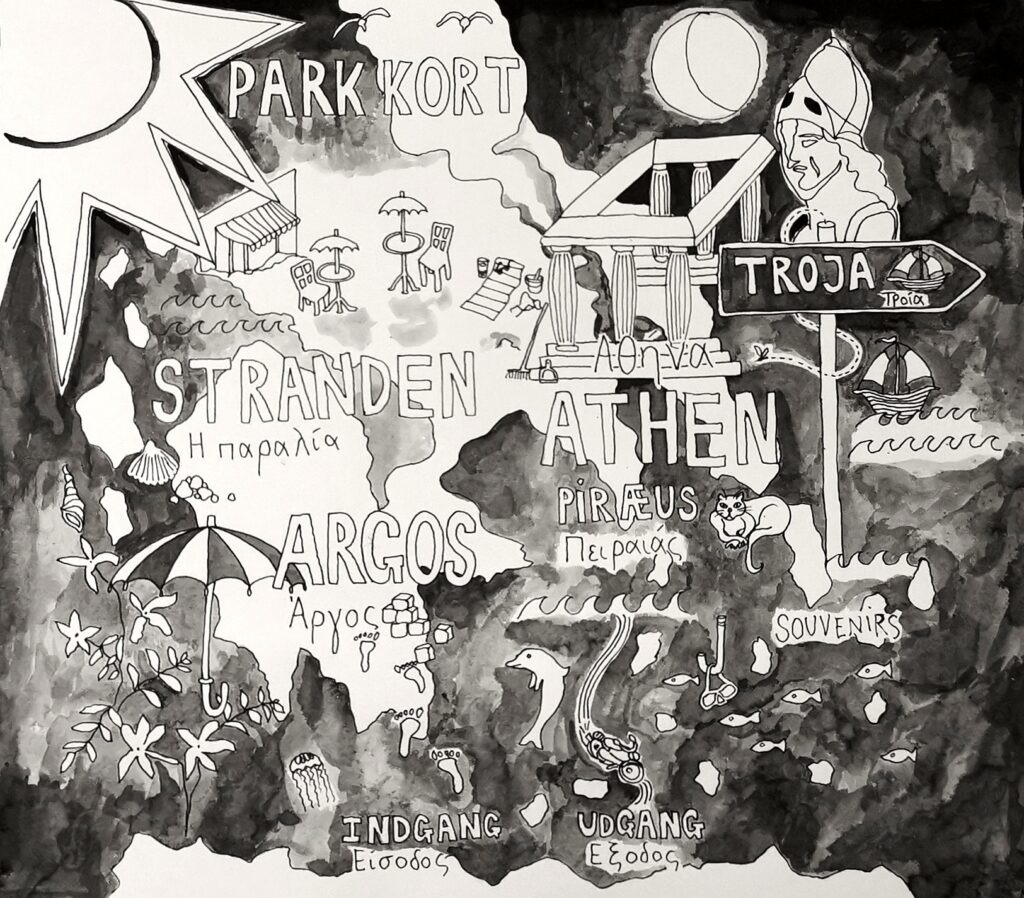 PARK KORT
TROJA
Τροία
STRANDEN
Η παραλία
Αθηνά
ATHEN
PIRÆUS
Πειραιάς
ARGOS
Άργος
SOUVENIRS
INDGANG
Είσοδος
UDGANG
Εξοδος